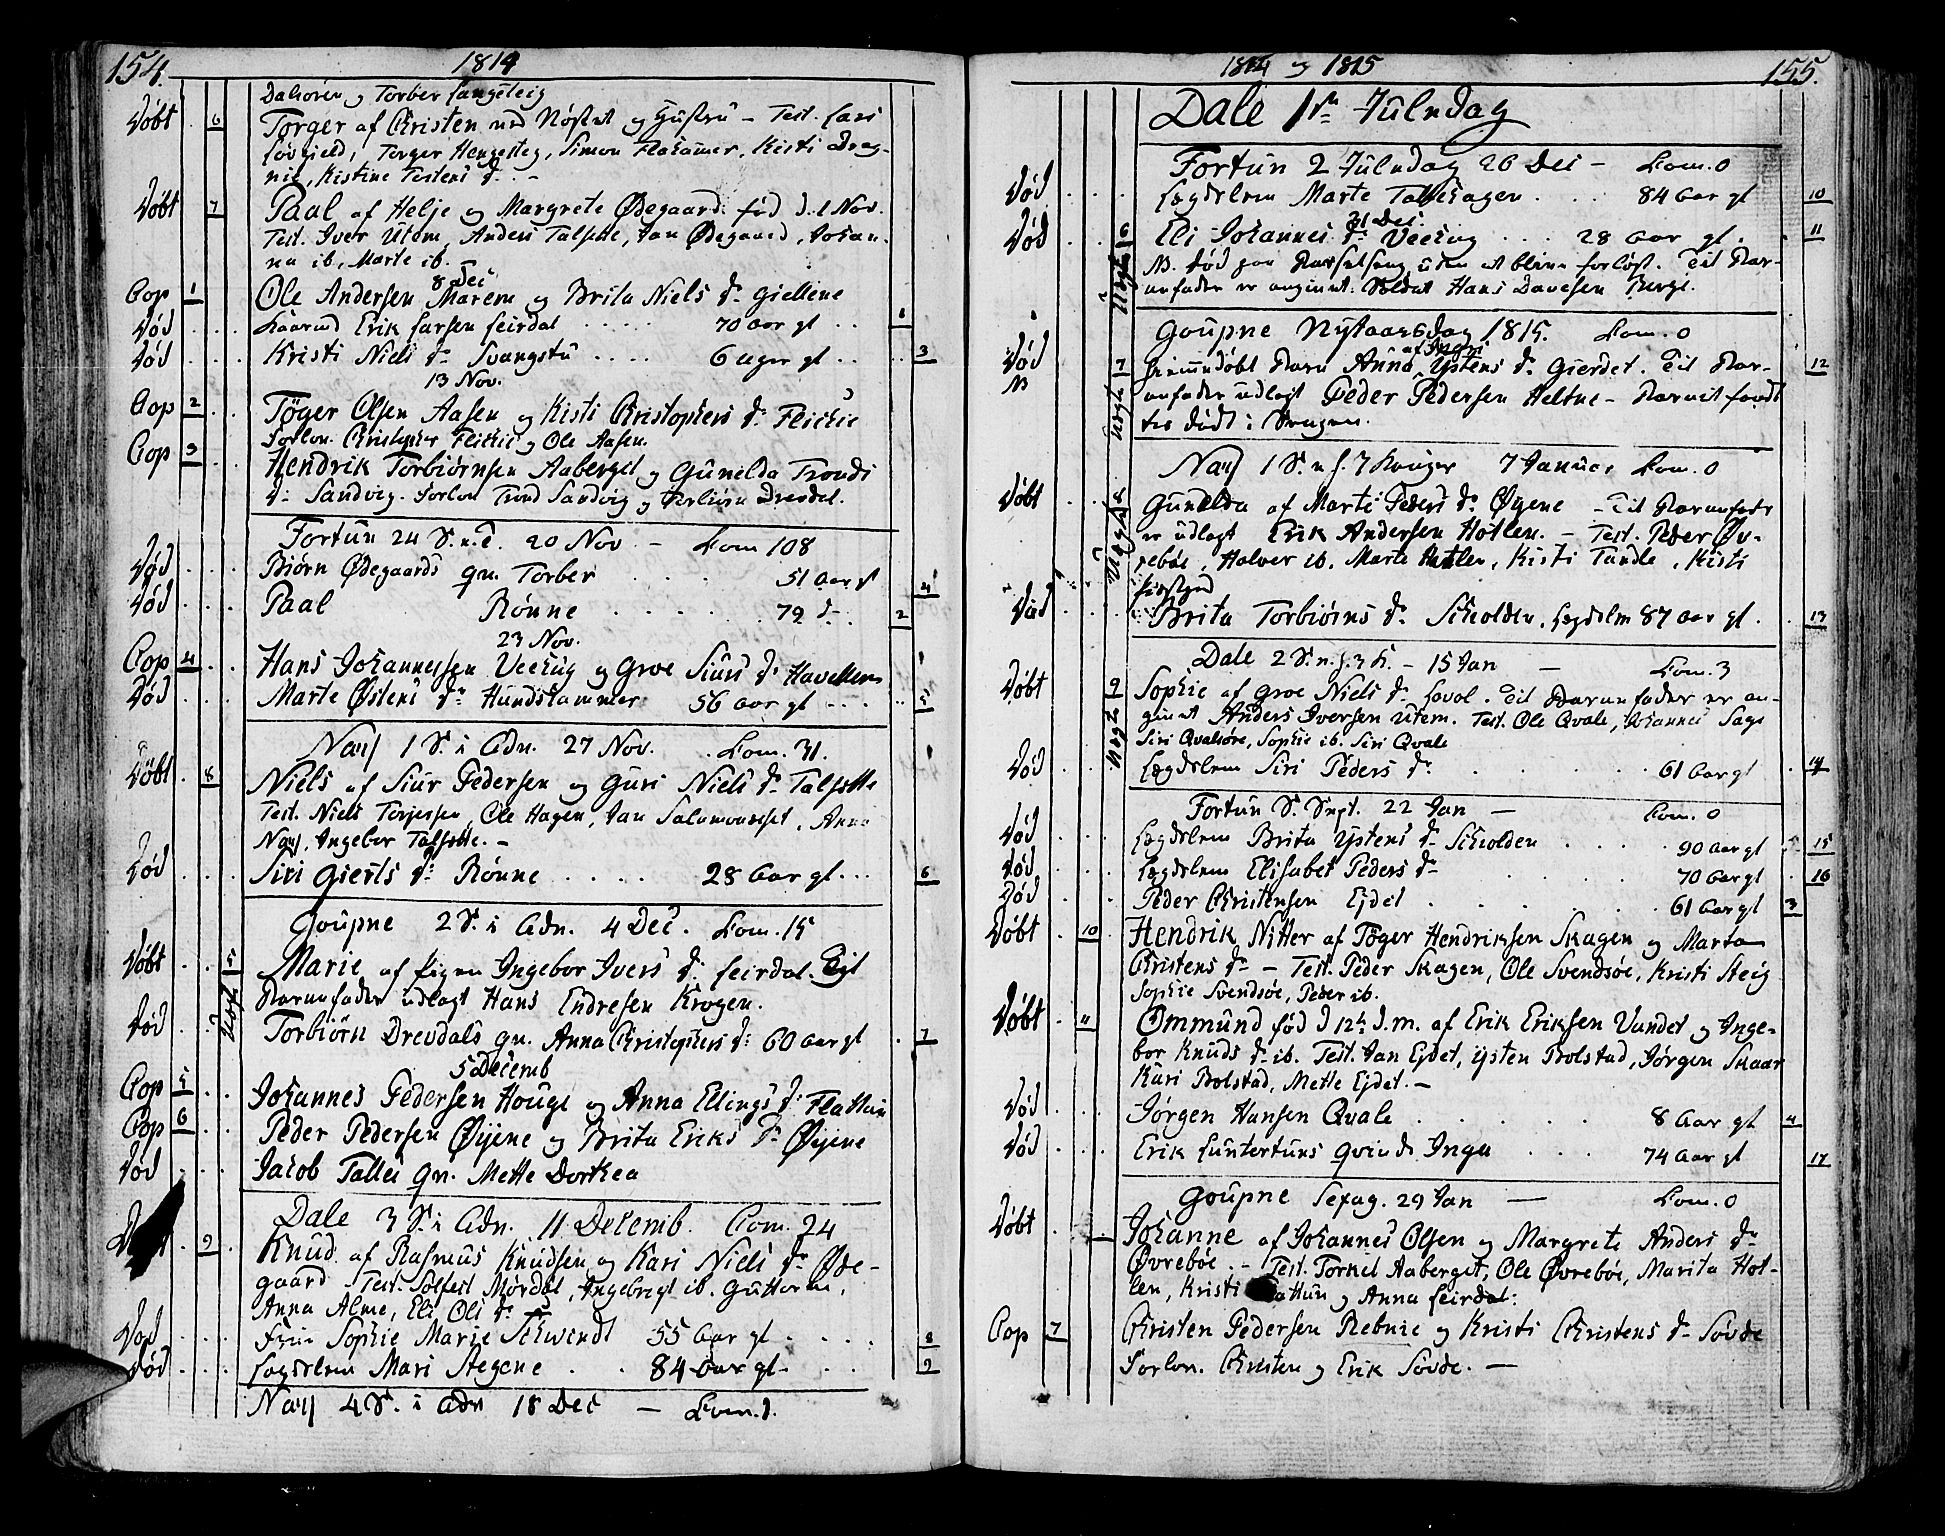 154.
1814
Dalsøren og Torber Langeteig
Døbt 6 Torger af Christen ved Nøstet og Gustru - Test. Lars
Løvgield, Torger Hengesteg, Simon Flahamer, Kisti Dreg-
nie, Kistine Testens d. -
Døbt 7 Paal af Helje og Margrete Ødegaard. fød d. 1 Nov.
Test. Iver Utem, Anders Talsette, Jan Ødegaard, Johan-
na ib. Marte ib.
8 Dec
Cop 1 Ole Andersen Marem og Brita Niels dr. Giellene
Død Kaarmd Erik Larsen Leirdal 70 Aar gl 1
Død Kristi Niels dr Svangstu 6 Uger gl 3
13 Nov.
Cop 2 Tøger Olsen Aasen og Kisti Christophers dr. Flickie
Forlov. Christopher Flickie og Ole Aasen.
Cop 3 Hendrik Torbiørnsen Aaberget og Gunelda Tronds
dr. Sandvig. Forlov Trond Sandvig og Torbiørn Drevdal.
Fortun 24 S. n. T. 20 Nov - Com 108
Død Biørn Ødegaards qv. Torber 51 Aar gl 4
Død Paal Rønne 79 d- 2
23 Nov.
Cop 4 Hans Johannessen Veekug og Groe Siurs dr Havellen
Død Marte Østens dr Hundskammer 56 Aar gl 5
Nay 1 S. i Adv. 27 Nov. Com. 31.
Døbt 8 Niels af Siur Pedersen og Guri Niels dr Talsette
Test. Niels Torjessen, Ole Hagen, Jan Salomonsset, Anna
Nay, Ingebor Talsette. -
Død Siri Gierts dr Rønne 28 Aar gl 6
Goupne 2 S. i Adv. 4 Dec. Com. 15
Døbt 5 Marie af Pigen Ingebor Ivers dr Leirdal. Til
Uægt Barnefader udlagt Hans Endresen Krogen.
Død Torbiørn Drevdals qv. Anna Christophers dr 60 Aar gl 7
5 Decemb
Cop 5 Johannes Pedersen Houge og Anna Ellings dr Flattun
Cop 6 Peder Pedersen Øyene og Brita Eriks dr Øyene
Død Jacob Talles qv. Mette Dorthea
Dale 3 S. i Adv. 11 Decemb. Com. 24
9 Knud af Rasmus Knudsen og Kari Niels dr Øde-
gaard Test. Tolfest Mørdal, Ingebrigt ib. Guttorm,
Anna Alme, Eli Ols dr
Død Frue Sophie Marie Schwendt 55 Aar gl 8
Død Lægdslem Mari Stegene 84 Aar gl 9
Nay 4 S. i Adv 18 Dec - Com. 7.
1814 og 1815
155.
Dale 1ste Juledag
Fortun 2 Juledag 26 Dec - Com. 0
Død Lægdslem Marte Talshagen 84 Aar gl 10
31 Dec
Død 6 Eli Johannes dr Veekug 28 Aar gl. 11
Uægte NB. død paa Barselseng uden at blive forløst. Til Bar-
nefader er angivet: Soldat Hans Davesen Berge.
Goupne Nytaarsdag 1815. Com. 0
Død 7 Hiemmedøbt Barn Anna af Ingri Ystens dr Gierdet. Til Bar- 12
NB Uægte nefader udlagt Peder Pedersen Heltne - Barnet fandt
tes dødt i Sengen.
Nay 1 S. n. h. 3 Konger 7 Januar Com. 0
Døbt 8 Gunelda af Marte Peders dr Øyene - Til Barnefader
Uægte er udlagt Erik Andersen Hotlen. - Test. Peder Øv-
rebøe, Halvor ib. Marte Hotlen, Kisti Tandle, Kisti

Død Brita Torbiørns dr Scholden, Lægdslem 87 Aar gl. 13
Dale 2 S. n. h. 3 K. - 15 Jan - Com. 3
Døbt 9 Sophie af Groe Niels dr Lovol. Til Barnefader er an-
Uægte givet Anders Iversen Utem. Test. Ole Qvale, Johannes Sage
Siri Qvalsøre, Sophie ib. Siri Qvale
Død Lægdslem Siri Peders dr 61 Aar gl 14
Fortun S. Sept. 22 Jan - Com. 0
Død Lægdslem Brita Ystens dr Scholden 90 Aar gl 15
Død Lægdslem Elisabet Peders dr 70 Aar gl 16
Død Peder Christensen Ejdet 61 Aar gl 3
Døbt 10 Hendrik Nitter af Tøger Hendriksen Skagen og Marta
Christens dr - Test. Peder Skagen, Ole Svendsøe, Kristi Steig
Sophie Svendsøe, Peder ib.
Døbt 11 Ommund fød d 12te d. m. af Erik Eriksen Vandet og Inge-
bor Knuds dr ib. Test. Jan Ejdet, Ysten Bolstad, Jørgen Skaar
Kari Bolstad, Mette Ejdet. -
Død Jørgen Hansen Qvale 8 Aar gl 4
Død Erik Luntertuns Qvinde Inga 74 Aar gl 17
Goupne Sexag. 29 Jan - Com. 0
Døbt Johanne af Johannes Olsen og Margrete Anders dr
Øvrebøe. - Test. Torkel Aaberget, Ole Øvrebøe, Marita Hot-
len, Kristi Flattun og Anna Leirdal.
Cop 7 Christen Pedersen Rebnie og Kristi Christens dr Søvde
Forlov. Christen og Erik Søvde. -